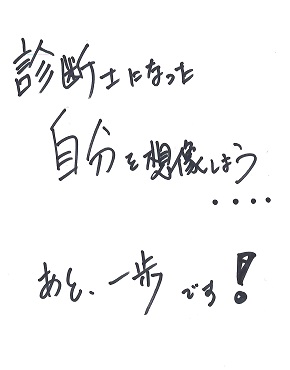 診断士になった
自分を想像しよう
・・・・
あと、一歩です!